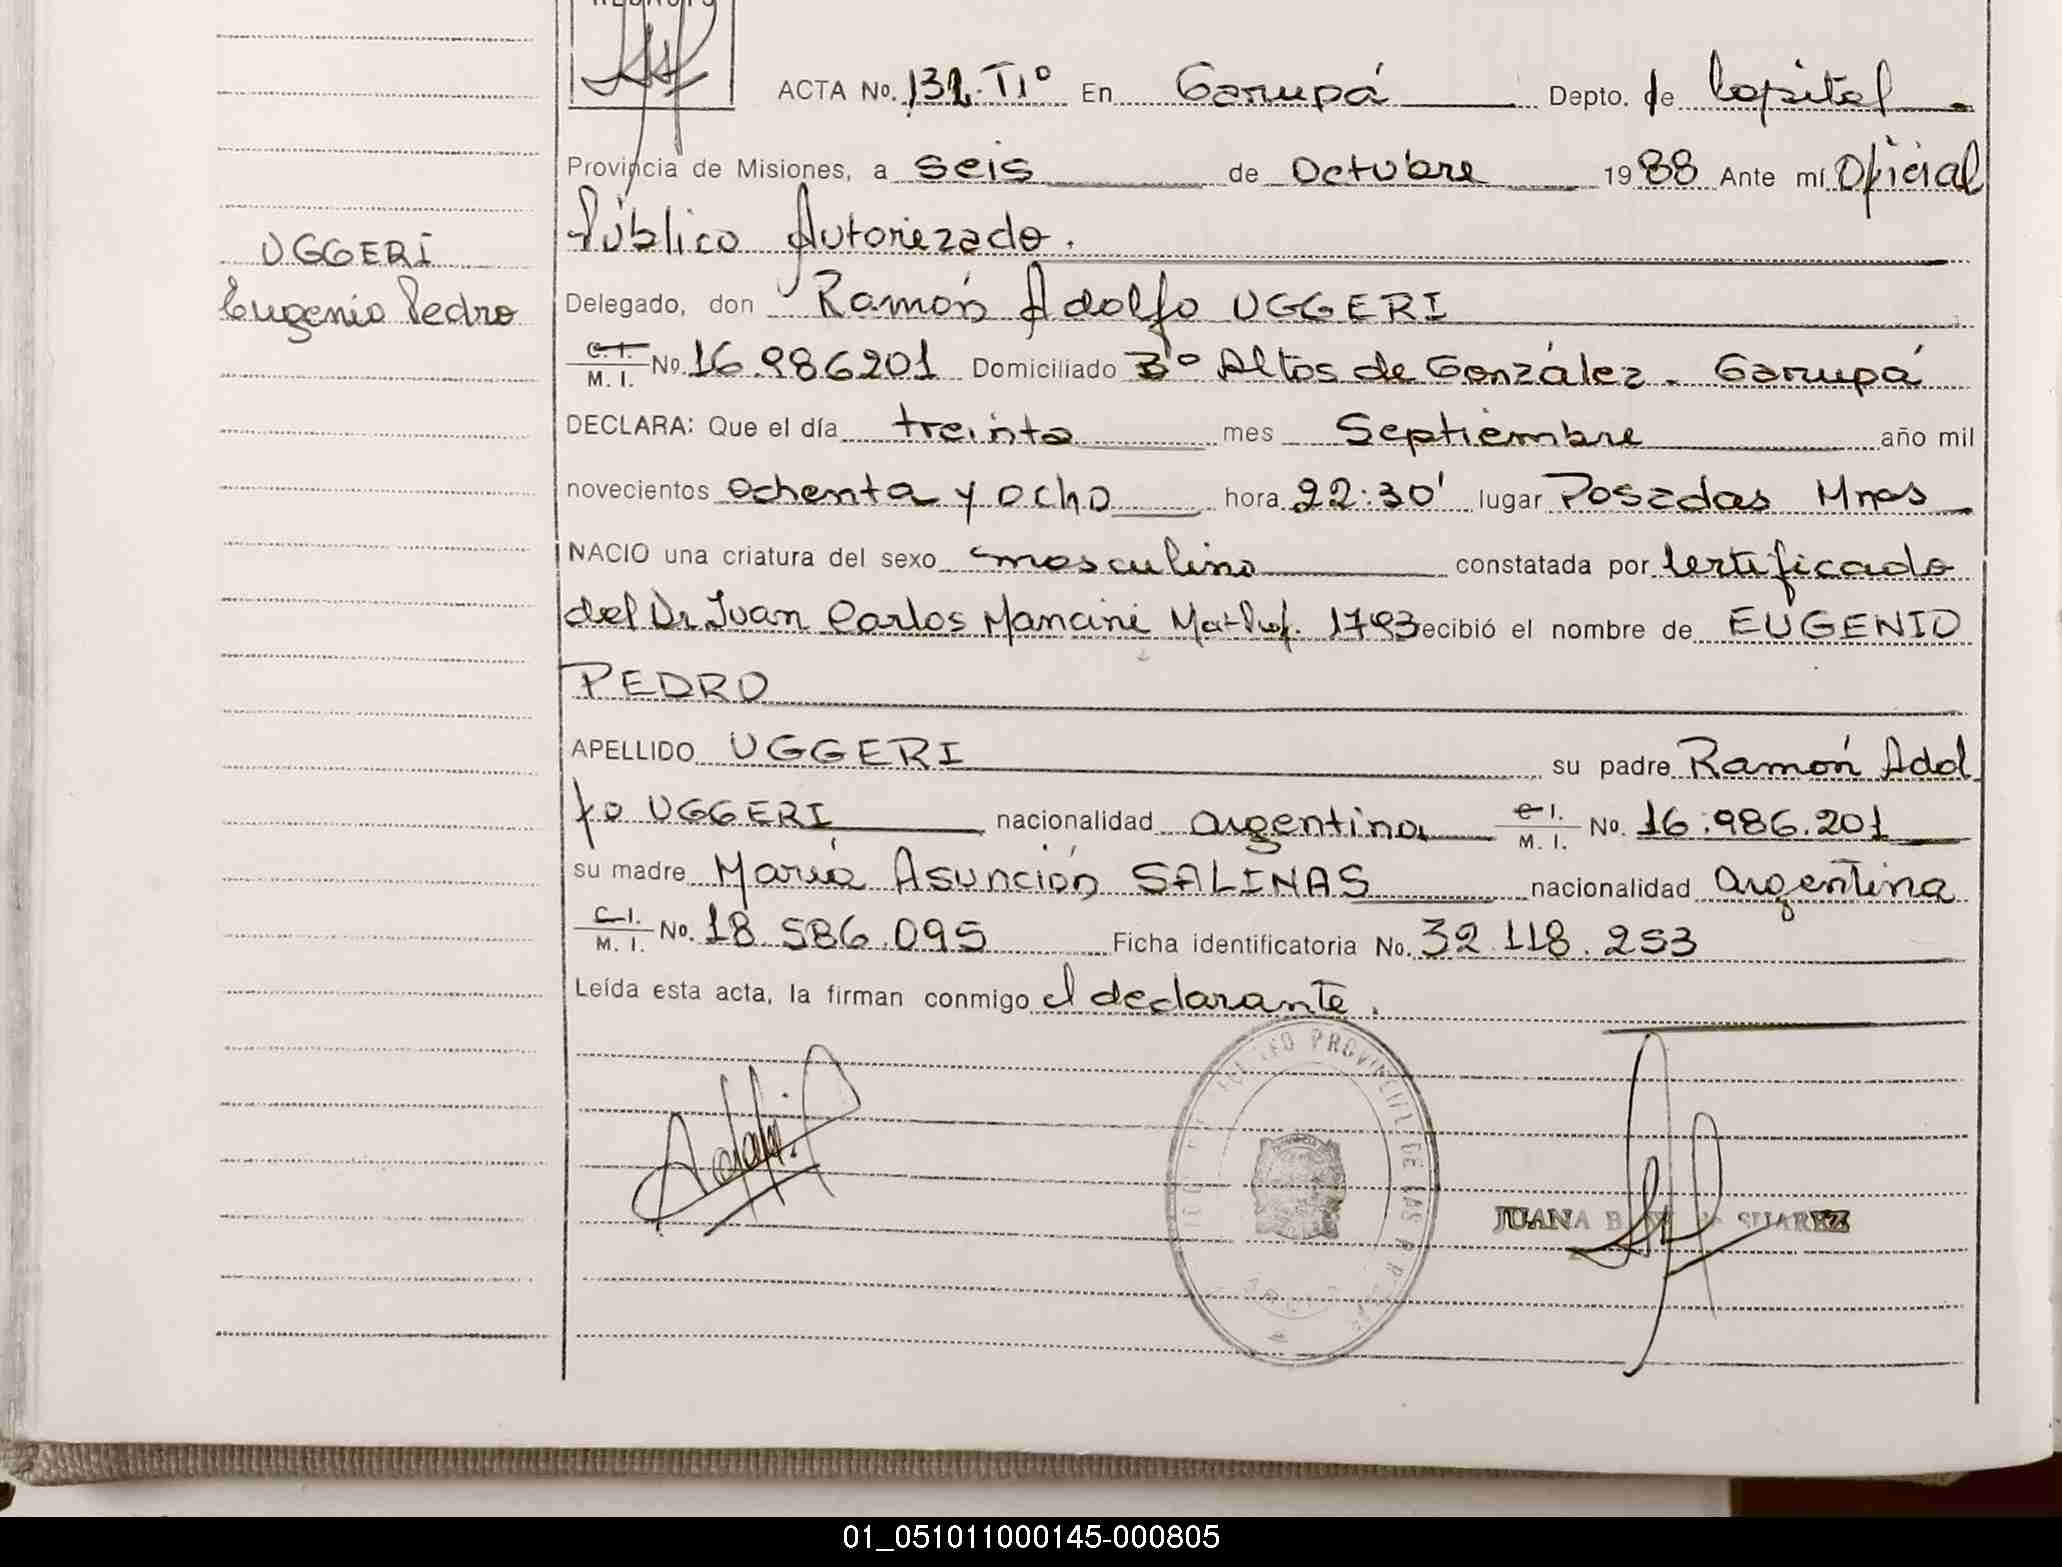 ACTA No. 132. T1º En Garupá Depto. de Capital
Provincia de Misiones, a seis de Octubre 1988 Ante mí Oficial
Público Autorizado.
UGGERI
Eugenio Pedro
Delegado, don Ramón Adolfo UGGERI
C. I. M. I. No. 16.986201 Domiciliado Bº Altos de González. Garupá
DECLARA: Que el día treinta mes Septiembre año mil
novecientos ochenta y ocho hora 22:30' lugar Posadas Mnes
NACIO una criatura del sexo masculino constatada por Certificado
del Dr Juan Carlos Mancini Mat Prof. 1793 ecibió el nombre de EUGENIO
PEDRO
APELLIDO UGGERI su padre Ramón Adol
fo UGGERI nacionalidad argentina C I. M. I. No. 16.986.201
su madre María Asunción SALINAS nacionalidad argentina
C. I. M. I. No. 18.586.095 Ficha identificatoria No. 32.118.253
Leída esta acta, la firman conmigo el declarante.
JUANA B. SUAREZ
01_051011000145-000805